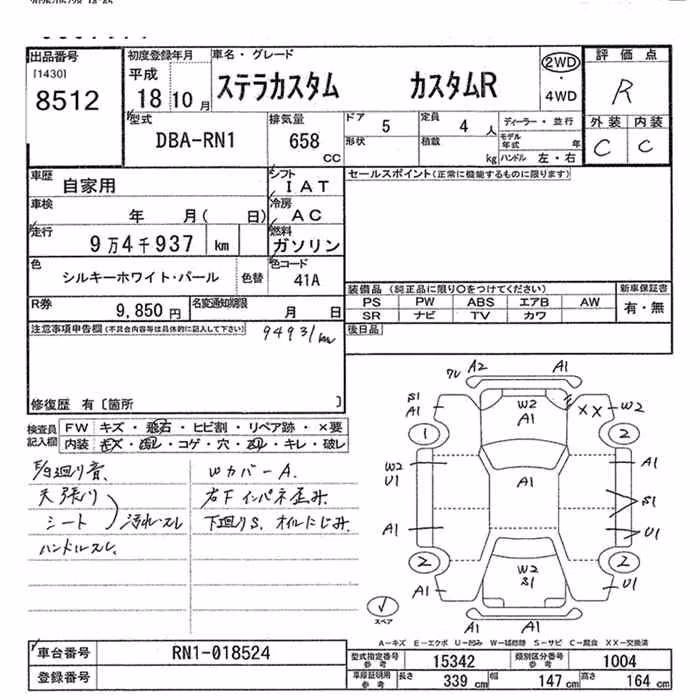 出品番号
[1430]
8512
初度登録年月
平成
18 10 月
車名・グレード
ステラカスタム カスタムR
2WD
・
4WD
評価点
R
外装 内装
C C
型式
DBA-RN1
排気量
658
CC
ドア
5
定員
4 人
ディーラー・並行
形状
積載
kg
モデル年式 年
ハンドル 左・右
車歴
自家用
シフト
IAT
車検
年 月( 日)
冷房
AC
走行
9万4千937 km
燃料
ガソリン
色
シルキーホワイト・パール
色替
色コード
41A
R券
9,850 円
名変通知期限
月 日
セールスポイント(正常に機能するものに限ります)
装備品 (純正品に限り〇をつけてください)
PS PW ABS エアB AW
SR ナビ TV カワ
新車保証書
有・無
後日品
注意事項申告欄(不具合内容等は具体的に記入して下さい)
94931km
修復歴 有〔箇所 〕
検査員記入欄
FW キズ・飛石・ヒビ割・リペア跡・×要
内装 キズ・汚レ・コゲ・穴・スレ・キレ・破レ
F/Sヨ廻り音、
天張り
シート
汚れ・スレ
ハンドルスレ、
Wカバー A.
右Fインパネ歪み.
下廻りS、オイルにじみ.
ワレ A2 A1
S1
A1
W2
A1
XX W2
1 2
W2
U1
A1
A1
S1
A1
U1
2 2
W2
S1
A1
U1
A1 A1
スペア
A－キズ E－エクボ U－凹み W－補修跡 S－サビ C－腐食 XX－交換済
車台番号
RN1-018524
登録番号
型式指定番号
参考
15342
類別区分番号
参考
1004
車庫証明用
参考
長さ
339 cm
幅
147 cm
高さ
164 cm